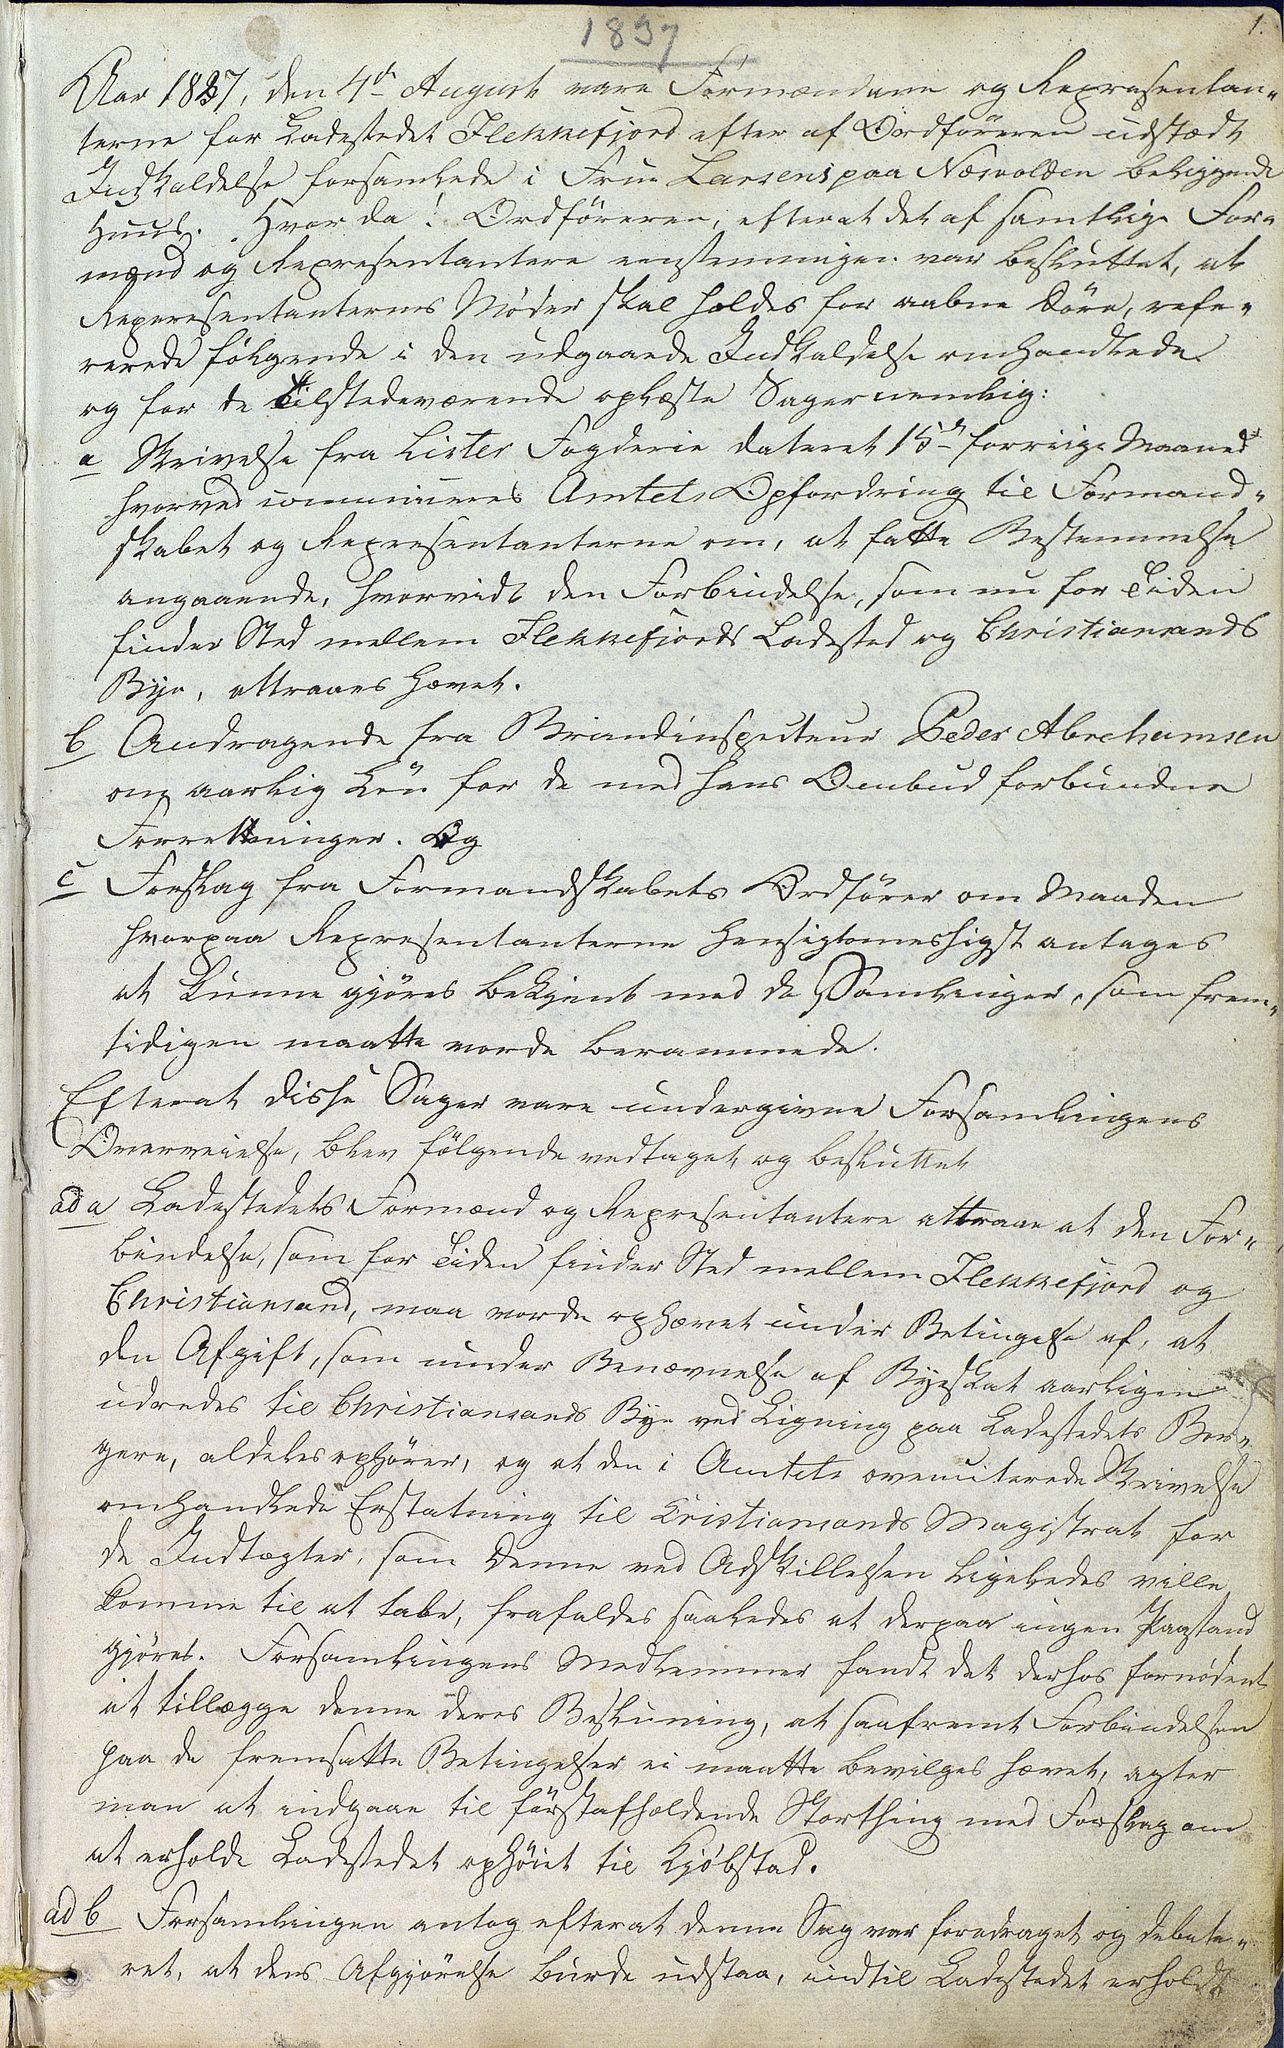 1837
1.
Aar 1837, den 4de August vare Formændene og Repræsentan-
terne for Ladestedet Flekkefjord efter af Ordføreren udstædt
Indkaldelse forsamlede i Frue Larsens paa Næsvolden beliggende
Huus. Hvor da! Ordføreren, efterat det af samtlige For-
mænd og Repræsentantere eenstemmigen var besluttet, at
Repræsentanternes Møder skal holdes for aabne Døre, refe-
rerede følgende i den udgaaede Indkaldelse omhandlede
og for de Tilstedeværende oplæste Sager nemlig:
a Skrivelse fra Lister Fogderie dateret 15de forrige Maaned
hvorved communiceres Amtets Opfordring til Formand-
skabet og Repræsentanterne om, at fatte Bestemmelse
angaaende, hvorvidt den Forbindelse, som nu for Tiden
finder Sted mellem Flekkefjords Ladested og Christiansands
Bye, attraaes hævet.
b Andragende fra Brandinspecteur Peder Abrahamsen
om aarlig Løn for de med hans Ombud forbundne
Forretninger. Og
c Forslag fra Formandskabets Ordfører om Maaden
hvorpaa Repræsentanterne hensigtsmessigst antages
at kunne gjøres bekjent med de Samlinger, som frem-
tidigen maatte vorde berammede.
Efterat disse Sager vare undergivne Forsamlingens
Overveielse, blev følgende vedtaget og besluttet
ad a Ladestedets Formænd og Repræsentantere attraae at den For-
bindelse, som for Tiden finder Sted mellem Flekkefjord og
Christiansand, maa vorde ophævet under Betingelse af, at
den Afgift, som under Benævnelse af Byeskat aarligen
udredes til Christiansands Bye ved Ligning paa Ladestedets Bor-
gere, aldeles ophører, og at den i Amtets ovenciterede Skrivelse
omhandlede Erstatning til Cristiansands Magistrat for
de Indtægter, som denne ved Adskillelsen ligeledes ville
komme til at tabe, frafaldes saaledes at derpaa ingen Paastand
gjøres. Forsamlingens Medlemmer fandt det derhos fornødent
at tillægge denne deres Beslutning, at saafremt Forbindelsen
paa de fremsatte Betingelser ei maatte bevilges hævet, agter
man at indgaae til førstafholdende Storthing med Forslag om
at erholde Ladestedet ophøiet til Kjøbstad.
ad b Forsamlingen antog efterat denne Sag var foredraget og debate-
ret, at dens Afgjørelse burde udstaa, indtil Ladestedet erholdt